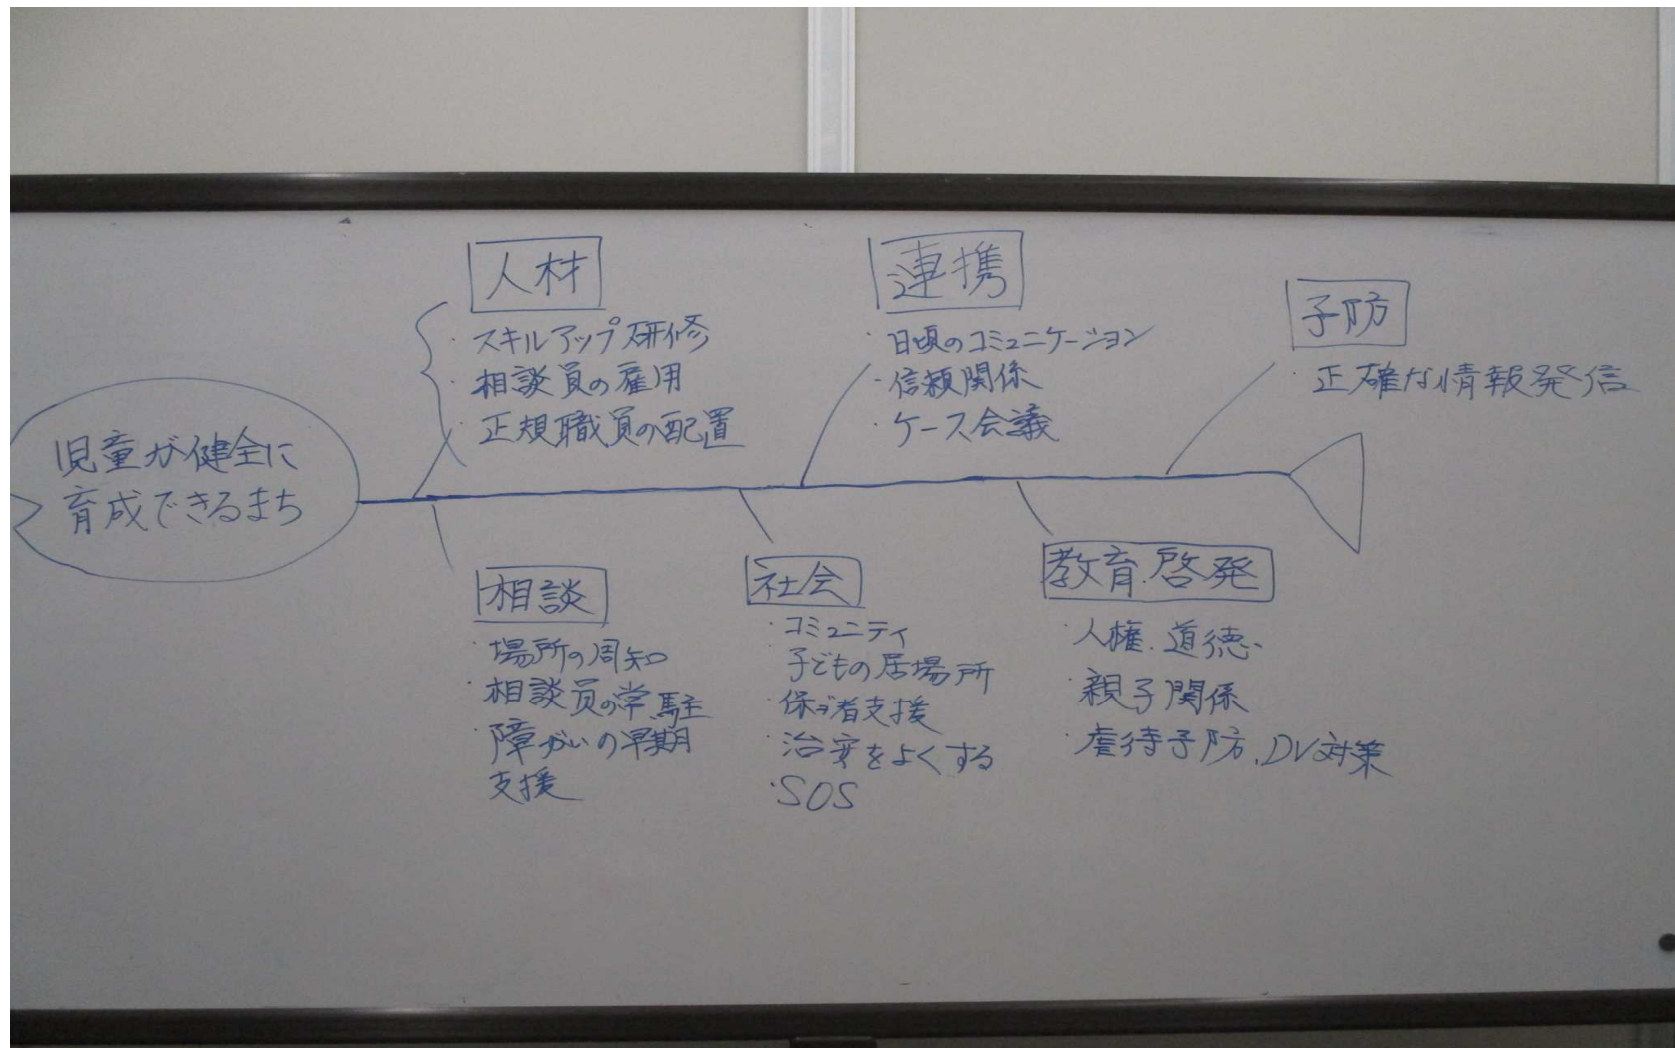 児童が健全に
育成できるまち
人材
・スキルアップ研修
・相談員の雇用
・正規職員の配置
連携
・日頃のコミュニケーション
・信頼関係
・ケース会議
予防
・正確な情報発信
相談
・場所の周知
・相談員の常駐
・障がいの早期
支援
社会
・コミュニティ
子どもの居場所
・保ゴ者支援
・治安をよくする
・SOS
教育.啓発
・人権.道徳
・親子関係
・虐待予防.DV対策